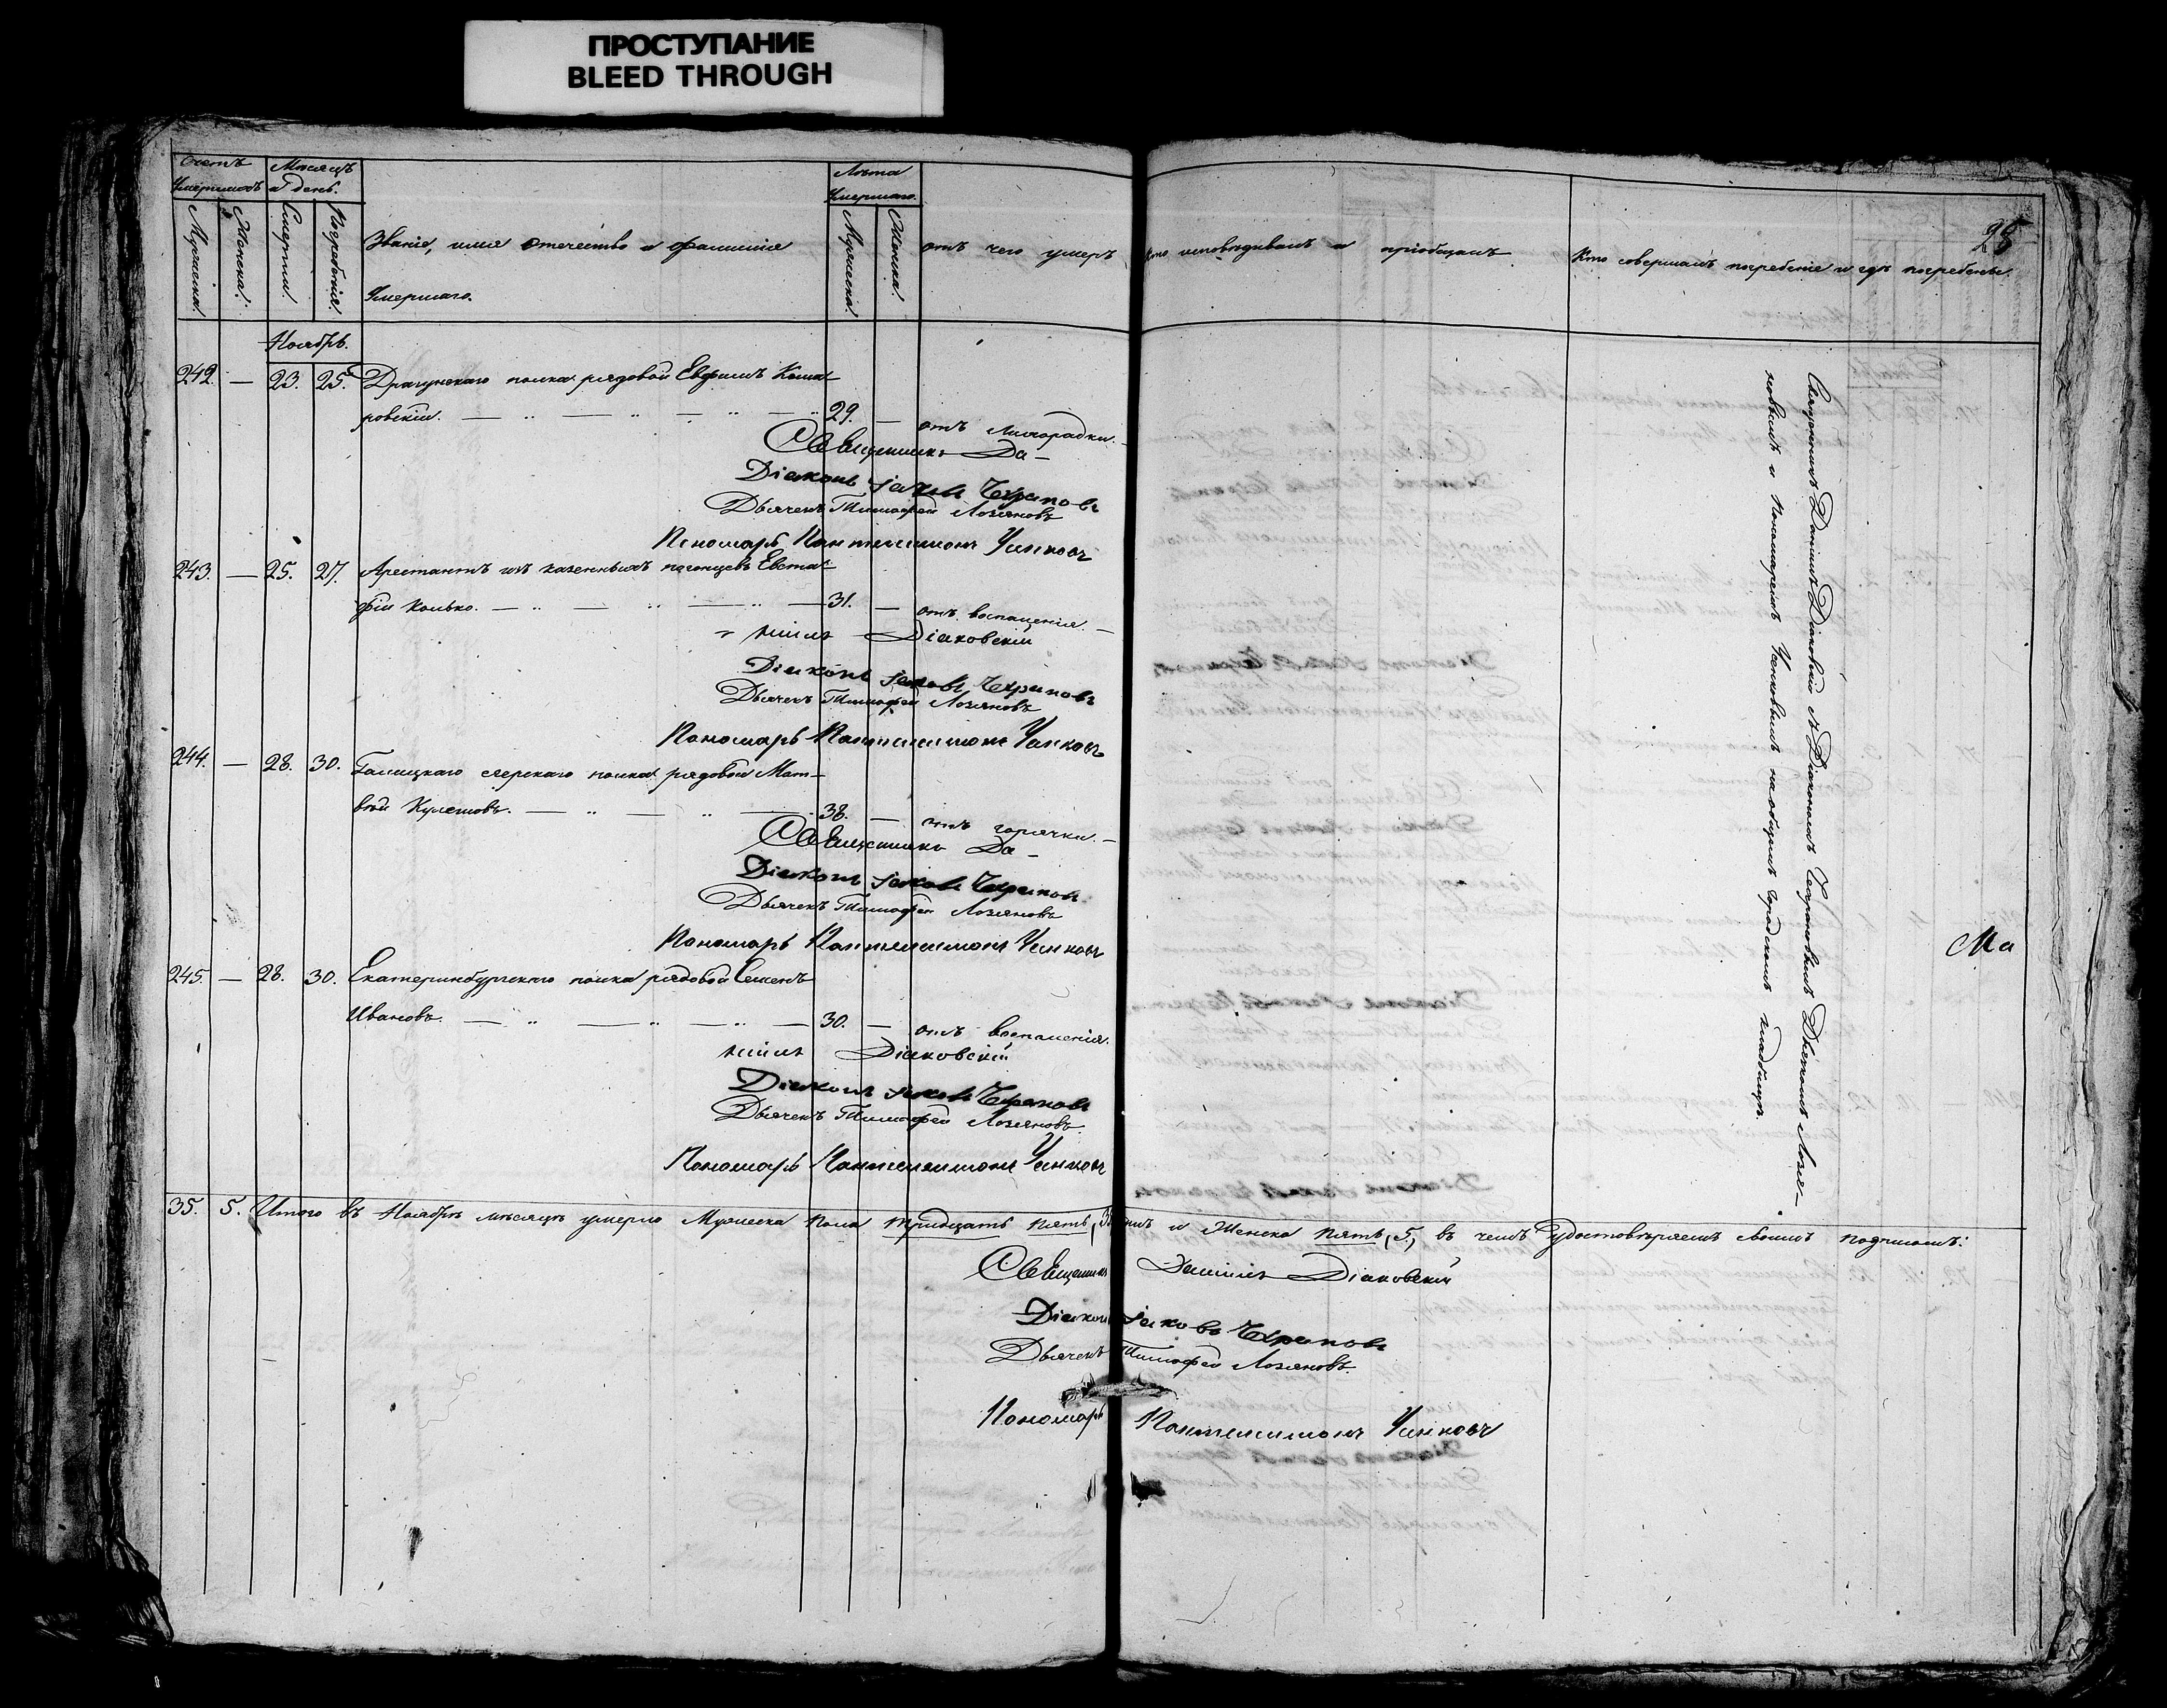 ПРОСТУПАНИЕ
BLEED THROUGH
Счетъ
умершихъ
Мѣсяцъ
и день.
Лѣта
Умершаго.
Мужеска.
Женска.
Смерти.
Погребенія.
Званіе, имя отечество и фамилія
Умершаго.
Мужеска.
Женска.
отъ чего умеръ
Кто исповѣдивалъ и пріобщалъ
Кто совершалъ погребеніе и гдѣ погребены.
25
Ноябрь.
242. — 23. 25. Драгунскаго полка рядовой Евфимъ Кома-
ровскій. — 29. — отъ лихорадки.
Священникъ Да-
Діаконъ Іаковъ Чехрановъ
Дьячекъ Тимофей Лозяновъ
Пономарь Пантелеимонъ Усиковъ
243. — 25. 27. Арестантъ изъ казенныхъ погонцевъ Евста-
фій Колько. — 31. — отъ воспаленія.
ніилъ Діаковскій
Діаконъ Іаковъ Чехрановъ
Дьячекъ Тимофей Лозяновъ
Пономарь Пантелеимонъ Усиковъ
244. — 28. 30. Галицкаго егерскаго полка рядовой Мат-
вѣй Кулешовъ. — 38. — отъ горячки.
Священникъ Да-
Діаконъ Іаковъ Чехрановъ
Дьячекъ Тимофей Лозяновъ
Пономарь Пантелеимонъ Усиковъ
245. — 28. 30. Екатеринбургскаго полка рядовой Семенъ
Ивановъ. — 30. — отъ воспаленія.
ніилъ Діаковскій
Діаконъ Іаковъ Чехрановъ
Дьячекъ Тимофей Лозяновъ.
Пономарь Пантелеимонъ Усиковъ
Священникъ Даніилъ Діаковскій съ Діакономъ Чехрановымъ Дьячкомъ Лозя-
новымъ и Пономаремъ Усиковымъ на общемъ городскомъ кладбищѣ
Ма
35. 5. Итого въ Ноябрѣ мѣсяцѣ умерло Мужеска пола тридцать пять, и Женска пять, (5.) въ чемъ удостовѣряемъ своимъ подписомъ:
Священникъ Даніилъ Діаковскій
Діаконъ Іаковъ Чехрановъ
Дьячекъ Тимофей Лозяновъ.
Пономарь Пантелеимонъ Усиковъ